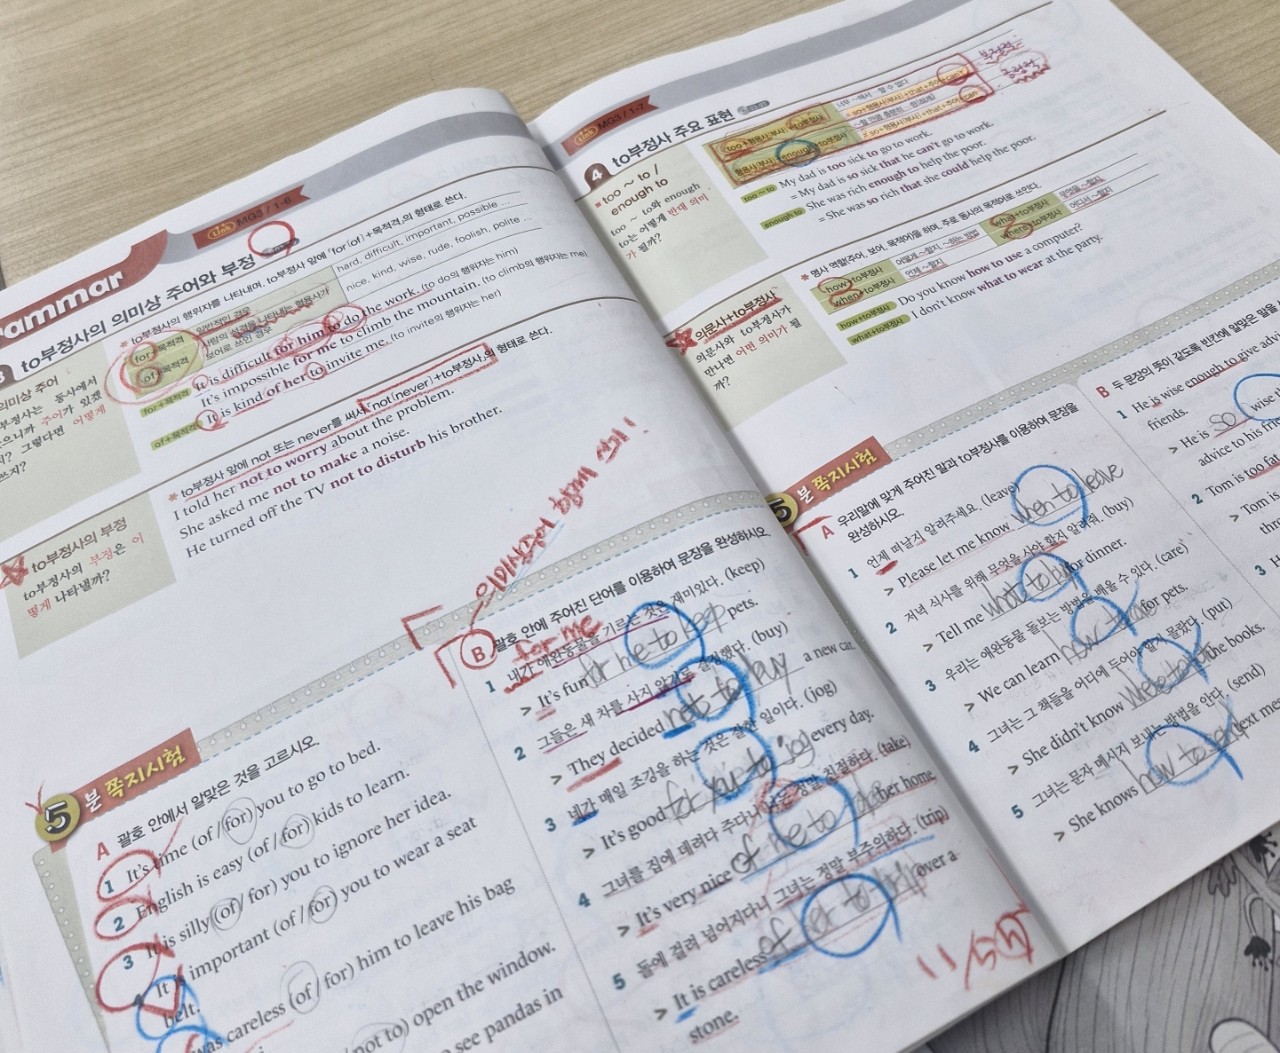 ammar
Link MG3 / 1-6
to부정사의 의미상 주어와 부정
의미상 주어
* to부정사의 행위자를 나타내며, to부정사 앞에 「for[of]+목적격」의 형태로 쓴다.
for+목적격 일반적인 경우 hard, difficult, important, possible ...
of+목적격 사람의 성격을 나타내는 형용사가 보어로 쓰인 경우 nice, kind, wise, rude, foolish, polite ...
for+목적격 It is difficult for him to do the work. (to do의 행위자는 him)
It's impossible for me to climb the mountain. (to climb의 행위자는 me)
of+목적격 It is kind of her to invite me. (to invite의 행위자는 her)
to부정사의 부정
to부정사의 부정은 어
떻게 나타낼까?
* to부정사 앞에 not 또는 never를 써서 「not[never]+to부정사」의 형태로 쓴다.
I told her not to worry about the problem.
She asked me not to make a noise.
He turned off the TV not to disturb his brother.
의미상주어 함께 쓰기!
5분 쪽지시험
A 괄호 안에서 알맞은 것을 고르시오.
1 It's time (of / for) you to go to bed.
2 English is easy (of / for) kids to learn.
3 It is silly (of / for) you to ignore her idea.
It is important (of / for) you to wear a seat
belt.
was careless (of / for) him to leave his bag
not to) open the window.
see pandas in
B 괄호 안에 주어진 단어를 이용하여 문장을 완성하시오.
for me
1 내가 애완동물을 기르는 것은 재미있다. (keep)
> It's fun for me to keep pets.
2 그들은 새 차를 사지 않기로 결정했다. (buy)
> They decided not to buy a new car.
3 네가 매일 조깅을 하는 것은 일이다. (jog)
> It's good for you to jog every day.
4 그녀를 집에 데려다 주다니 정말 친절하다. (take)
> It's very nice of me to her home
5 돌에 걸려 넘어지다니 그녀는 정말 부주의하다. (trip)
> It is careless of her to trip over a
stone.
Link MG3 / 1-7
4 to부정사 주요 표현
too ~ to /
enough to
too ~ to와 enough
to는 어떻게 반대 의미
가 될까?
too+형용사[부사]+to부정사 너무 ~해서 할 수 없다
= so+형용사[부사]+that+주어+can't
형용사[부사]+enough+to부정사
= so+형용사[부사]+that+주어+can
부정적
긍정적
too ~ to My dad is too sick to go to work.
= My dad is so sick that he can't go to work.
enough to She was rich enough to help the poor.
= She was so rich that she could help the poor.
의문사+to부정사
의문사와 to부정사가
만나면 어떤 의미가 될
까?
* 명사 역할(주어, 보어, 목적어)을 하며, 주로 동사의 목적어로 쓰인다.
how+to부정사 어떻게 ~할지, ~하는 방법 what+to부정사 무엇을 ~할지
when+to부정사 언제 ~할지 where+to부정사 어디서 ~할지
how+to부정사 Do you know how to use a computer?
what+to부정사 I don't know what to wear at the party.
5분 쪽지시험
A 우리말에 맞게 주어진 말과 to부정사를 이용하여 문장을
완성하시오.
1 언제 떠날지 알려주세요. (leave)
> Please let me know when to leave
2 저녁 식사를 위해 무엇을 사야 할지 알려줘. (buy)
> Tell me what to buy for dinner.
3 우리는 애완동물 돌보는 방법을 배울 수 있다. (care)
> We can learn how to for pets.
4 그녀는 그 책들을 어디에 두어야 할지 몰랐다. (put)
> She didn't know the books.
5 그녀는 문자 메시지 보내는 방법을 안다. (send)
> She knows how to send text me
B 두 문장의 뜻이 같도록 빈칸에 알맞은 말을
1 He is wise enough to give advi
friends.
> He is so wise th
advice to his frie
2 Tom is too fat
> Tom is
3